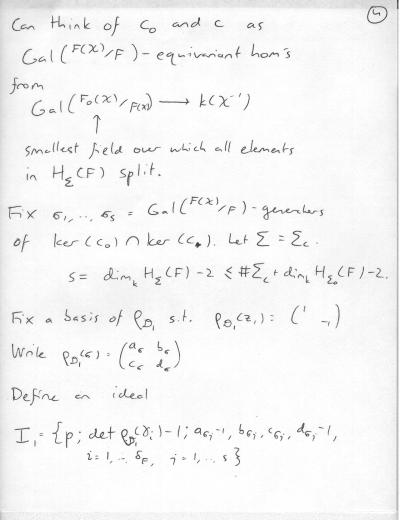 4
Can think of c₀ and c as
Gal(F(χ)/F)-equivariant hom's
from
Gal(F₀(χ)/F(χ)) ⟶ k(χ⁻¹)
↑
smallest field over which all elements
in H_Σ(F) split.
Fix σ₁,..,σₛ = Gal(F(χ)/F)-generators
of ker(c₀) ∩ ker(c.). Let Σ = Σ_c.
s = dim_k H_Σ(F) - 2 ≤ #Σ_c + dim_k H_Σ₀(F) - 2.
Fix a basis of ρ_𝒟₁ s.t. ρ_𝒟₁(z₁) = (¹ ₋₁)
Write ρ_𝒟₁(σ) = (a_σ b_σ
c_σ d_σ)
Define an ideal
I₁ = {p; det ρ_𝒟₁(γᵢ)-1; a_σⱼ-1, b_σⱼ, c_σⱼ, d_σⱼ-1,
i=1,.. δ_F, j=1,..,s}